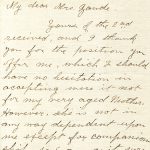 My dear Mrs. Zande
Yours of the 2nd
received, and I thank
you for the position you
offer me, which I should
have no hesitation in
accepting were it not
for my very aged Mother.
However, she is not in
any way dependent upon
me except for companion